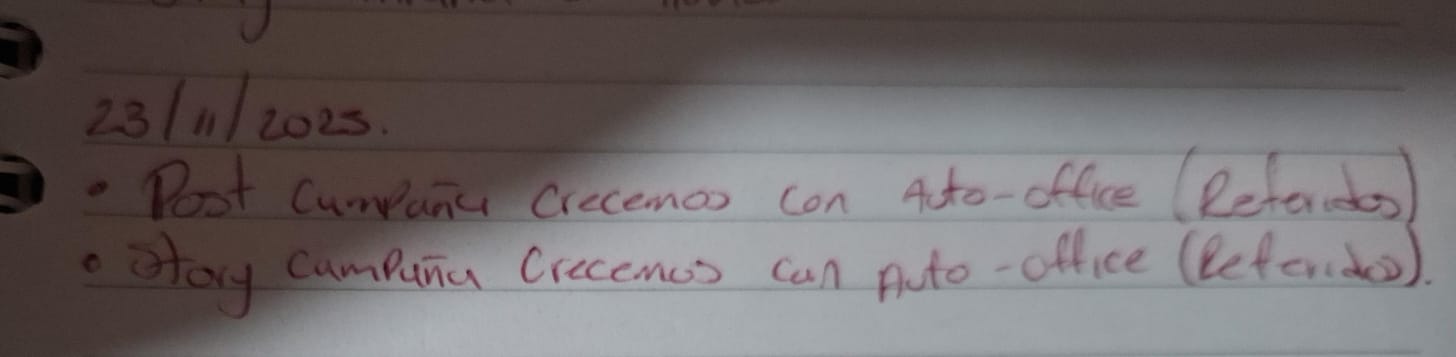 23/11/2025.
• Post Campaña Crecemos con Auto-office (Referidos)
• Story Campaña Crecemos con Auto-office (Referidos).